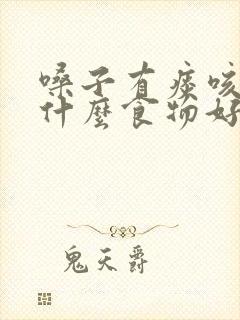 嗓子有痰咳
什麼食物好
鬼天爵